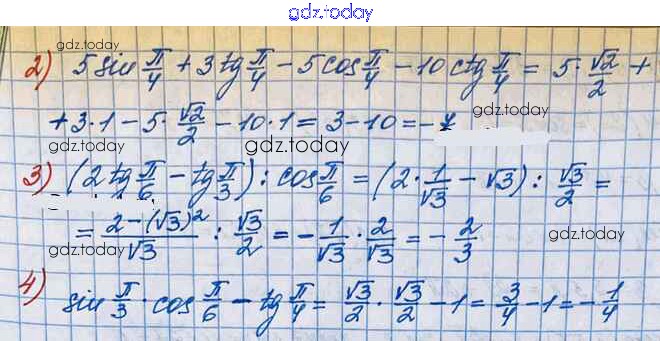 gdz.today
gdz.today
2) 5 sin π/4 + 3 tg π/4 − 5 cos π/4 − 10 ctg π/4 = 5 · √2/2 +
gdz.today
+ 3 · 1 − 5 · √2/2 − 10 · 1 = 3 − 10 = −7
gdz.today
gdz.today
3) (2 tg π/6 − tg π/3) : cos π/6 = (2 · 1/√3 − √3) : √3/2 =
gdz.today
= 2 − (√3)²/√3 : √3/2 = − 1/√3 · 2/√3 = − 2/3
gdz.today
gdz.today
4) sin π/3 · cos π/6 − tg π/4 = √3/2 · √3/2 − 1 = 3/4 − 1 = − 1/4